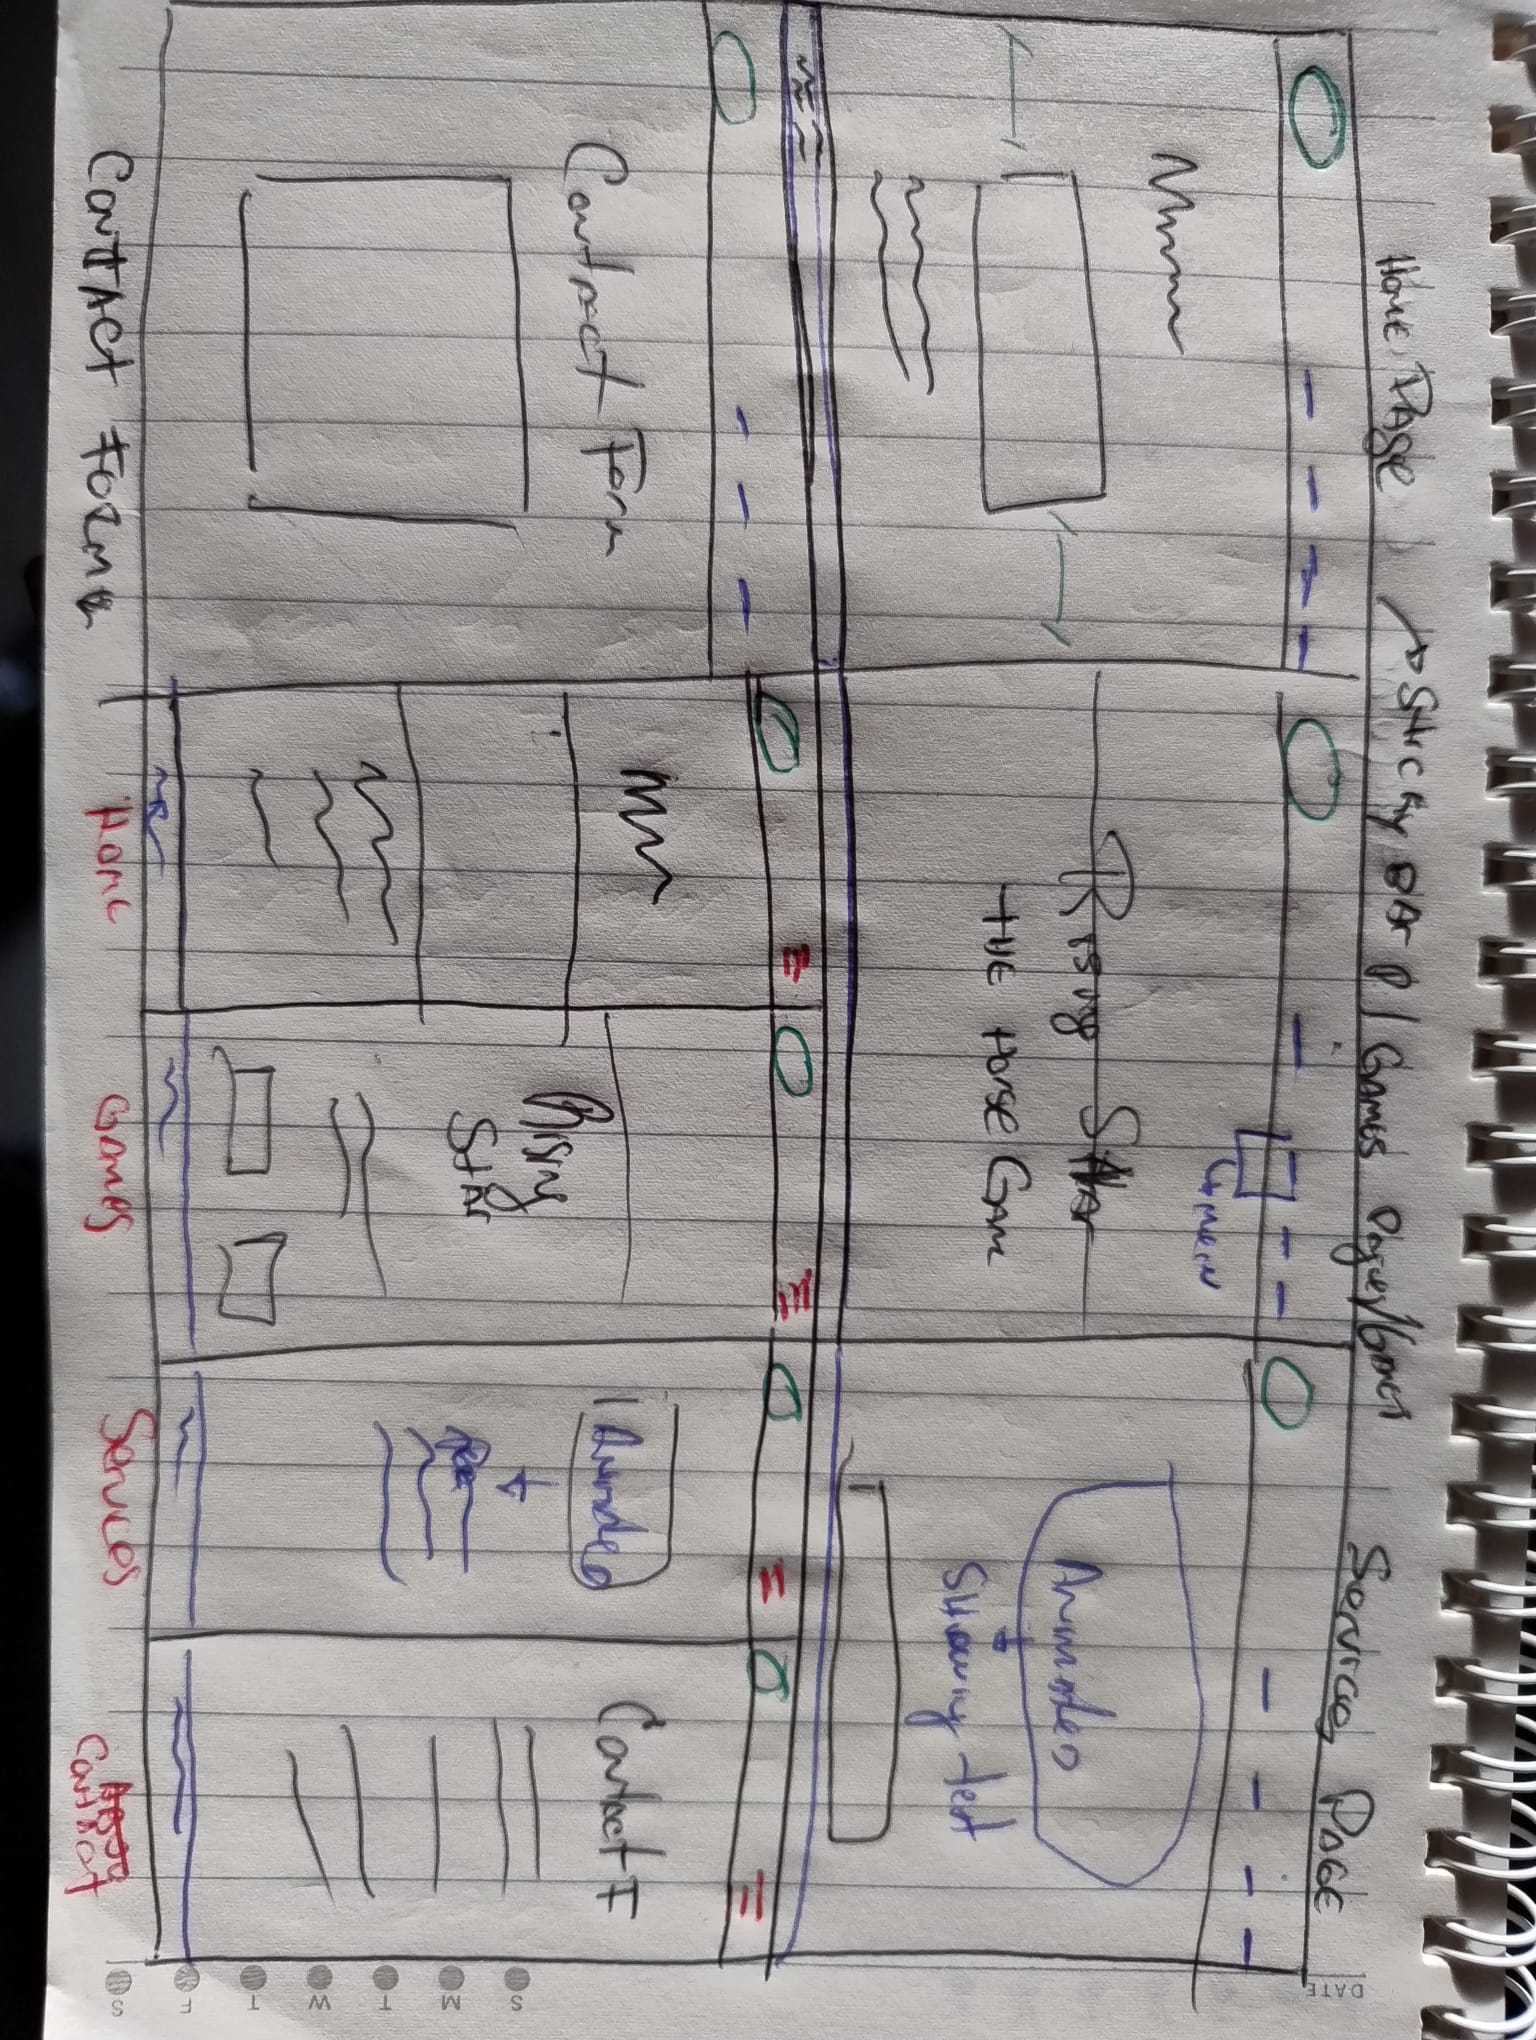 Home Page
Sticky BAr
Games Pages/Games
Services Page
Rising StAr
THE Horse Gam
Animated
Showing text
Contact Form
Rising
StAr
Animated
Contact F
Contact Form
Home
Games
Services
Contact
DATE
S M T W T F S